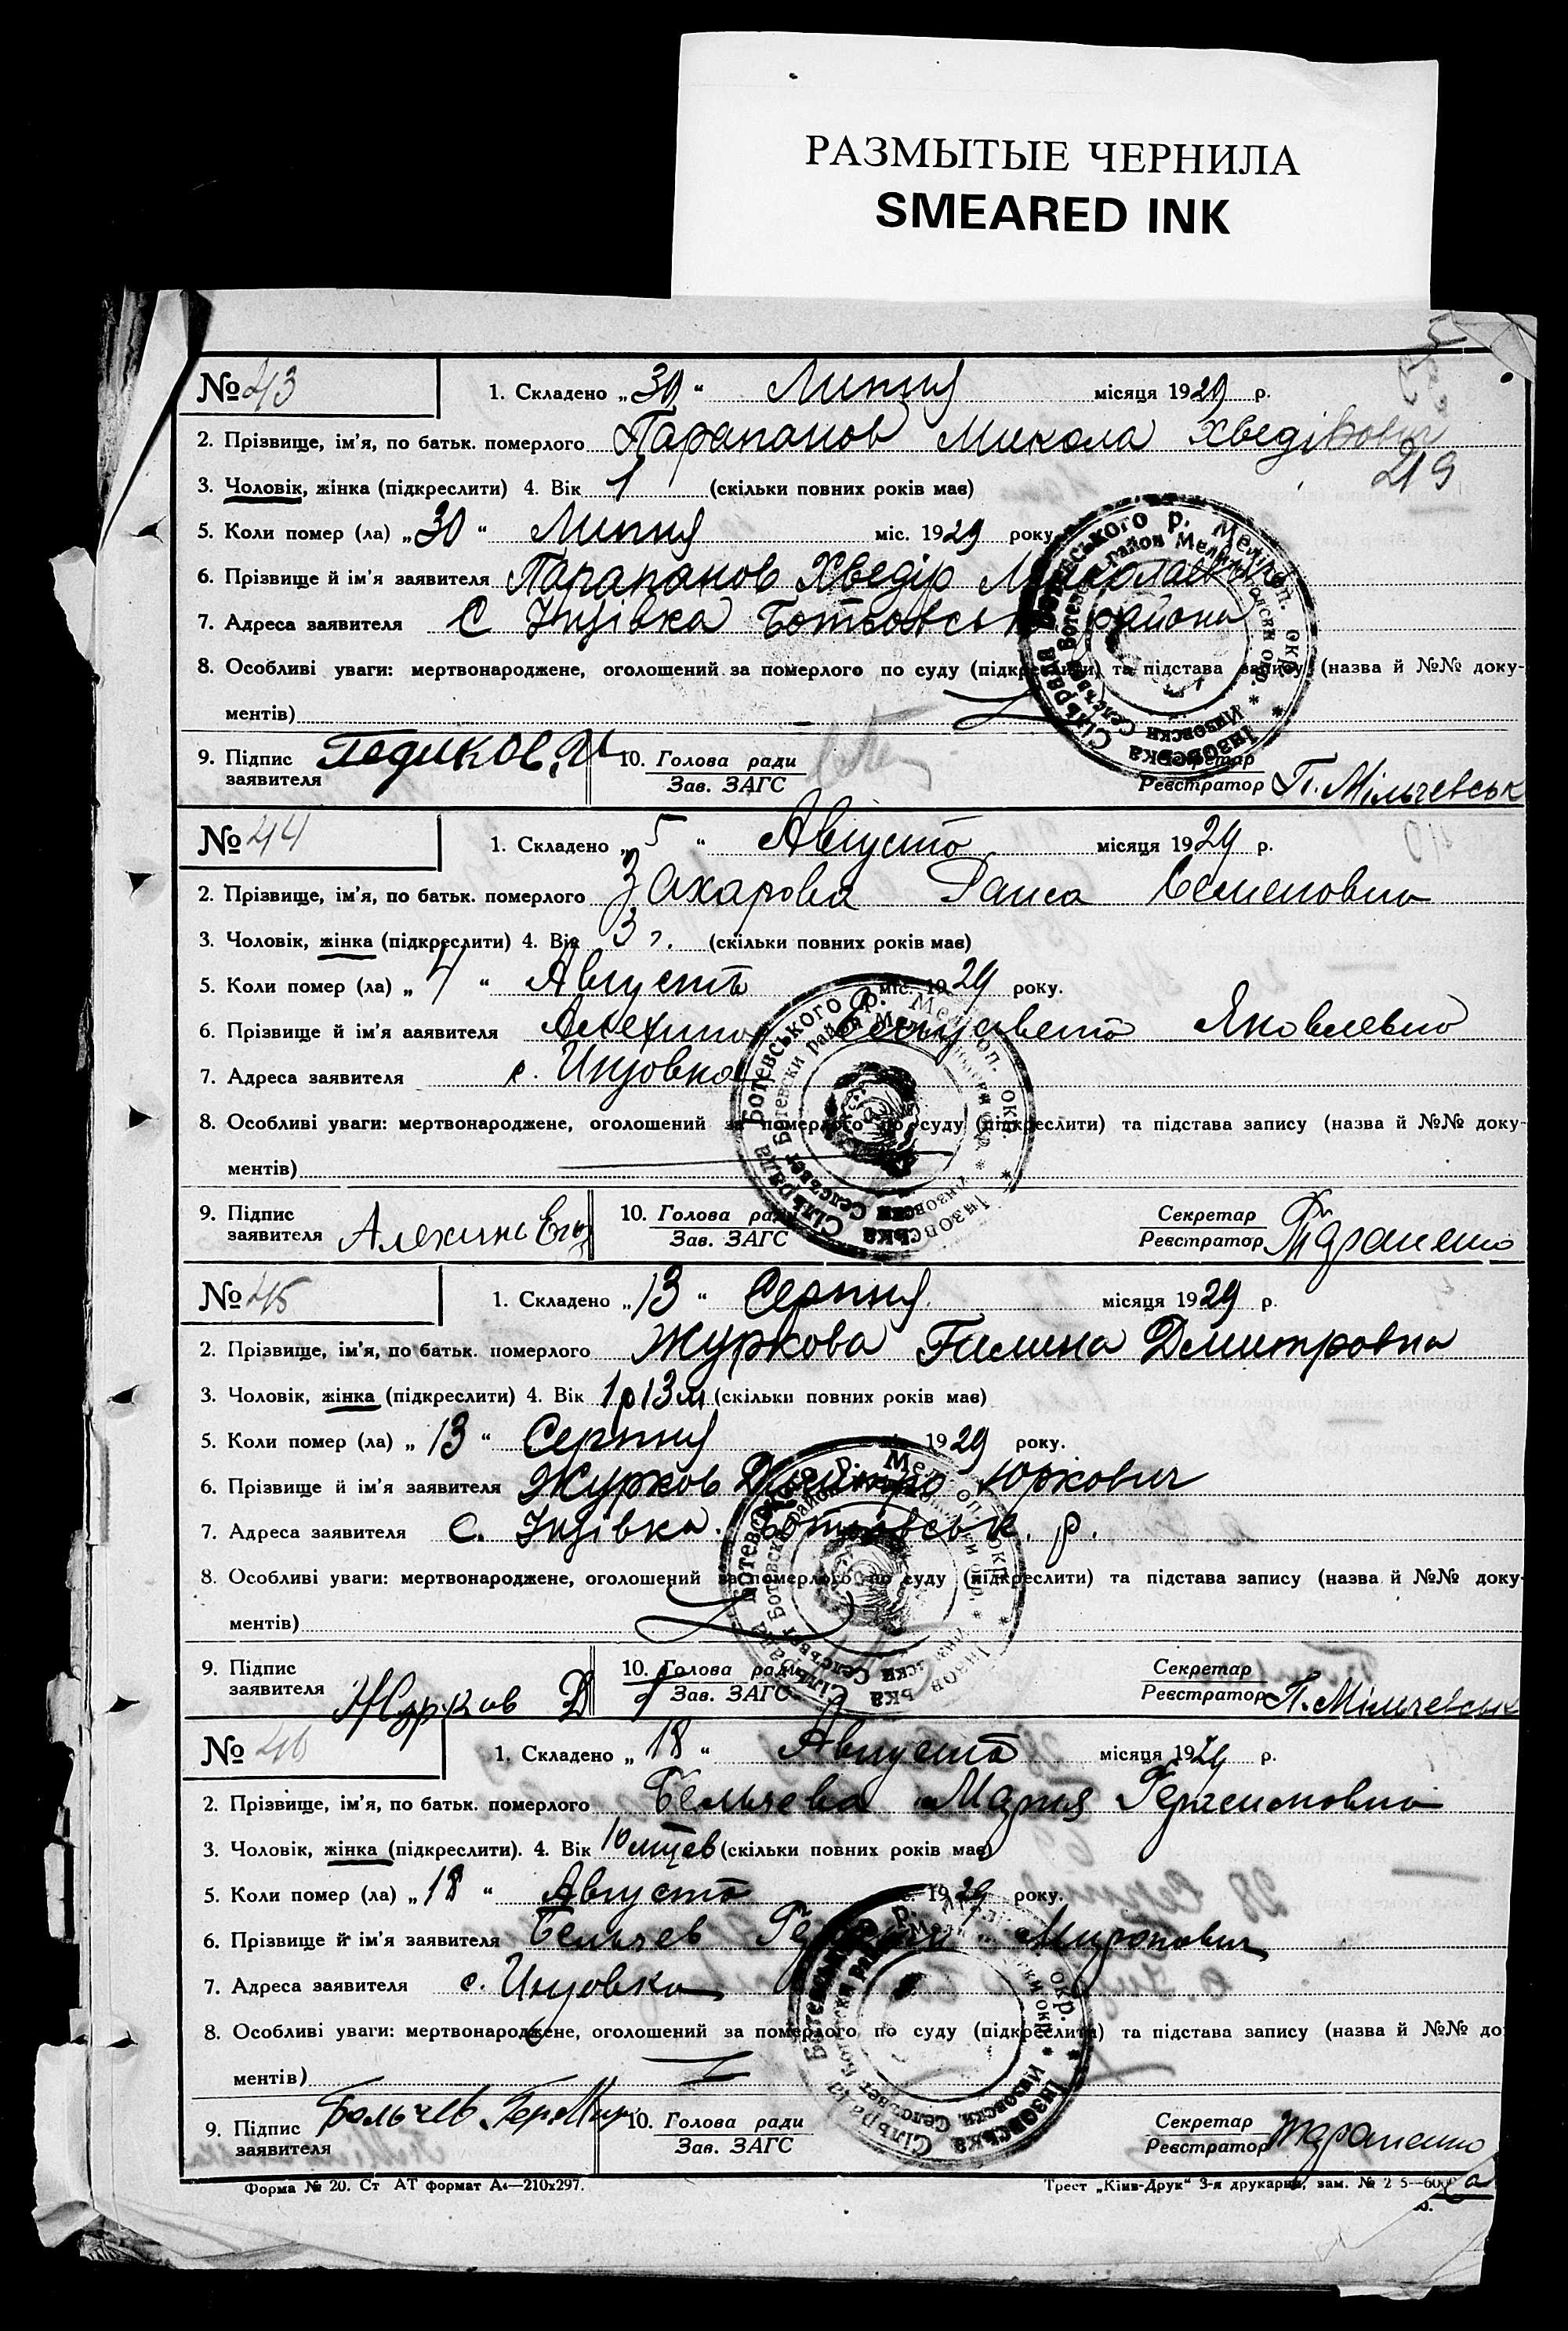 РАЗМЫТЫЕ ЧЕРНИЛА
SMEARED INK
219
№ 43 1. Складено „30“ Липня місяця 1929 р.
2. Прізвище, ім'я, по батьк. померлого Парапанов Микола Хведірович
3. Чоловік, жінка (підкреслити) 4. Вік 1 (скільки повних років має)
5. Коли помер (ла) „30“ Липня міс. 1929 року
6. Прізвище й ім'я заявителя Парапанов Хведір Миколаевич
7. Адреса заявителя С Інзівка Ботьовськ района
8. Особливі уваги: мертвонароджене, оголошений за померлого по суду (підкреслити) та підстава запису (назва й №№ доку-
ментів)
9. Підпис заявителя 10. Голова ради Зав. ЗАГС Секретар Реєстратор П. Мільчевськ
№ 44 1. Складено „5“ Августа місяця 1929 р.
2. Прізвище, ім'я, по батьк. померлого Захарова Раиса Семеновна
3. Чоловік, жінка (підкреслити) 4. Вік 3 г. (скільки повних років має)
5. Коли помер (ла) „4“ Августа міс. 1929 року.
6. Прізвище й ім'я заявителя Алехина Яковлевна
7. Адреса заявителя с. Инзовка
8. Особливі уваги: мертвонароджене, оголошений за померлого по суду (підкреслити) та підстава запису (назва й №№ доку-
ментів)
9. Підпис заявителя 10. Голова ради Зав. ЗАГС Секретар Реєстратор
№ 45 1. Складено „13“ Серпня місяця 1929 р.
2. Прізвище, ім'я, по батьк. померлого Журкова Галина Дмитровна
3. Чоловік, жінка (підкреслити) 4. Вік 1 р 13 м (скільки повних років має)
5. Коли помер (ла) „13“ Серпня 1929 року.
6. Прізвище й ім'я заявителя Журков Дмитро Юркович
7. Адреса заявителя с. Інзівка. Ботьовськ. р.
8. Особливі уваги: мертвонароджене, оголошений за померлого по суду (підкреслити) та підстава запису (назва й №№ доку-
ментів)
9. Підпис заявителя Журков Д 10. Голова ради Зав. ЗАГС Секретар Реєстратор П. Мільчевськ
№ 46 1. Складено „18“ Августа місяця 1929 р.
2. Прізвище, ім'я, по батьк. померлого Бельчева Мария
3. Чоловік, жінка (підкреслити). 4. Вік 10 мцев (скільки повних років має)
5. Коли помер (ла) „18“ Августа 1929 року.
6. Прізвище й ім'я заявителя Бельчев Миронович
7. Адреса заявителя с. Инзовка
8. Особливі уваги: мертвонароджене, оголошений за померлого по суду (підкреслити) та підстава запису (назва й №№ до
ментів)
9. Підпис заявителя Бельчев 10. Голова ради Зав. ЗАГС Секретар Реєстратор
Форма № 20. Ст АТ формат А4—210х297. Трест „Київ-Друк“ 3-я друкарня, зам. №